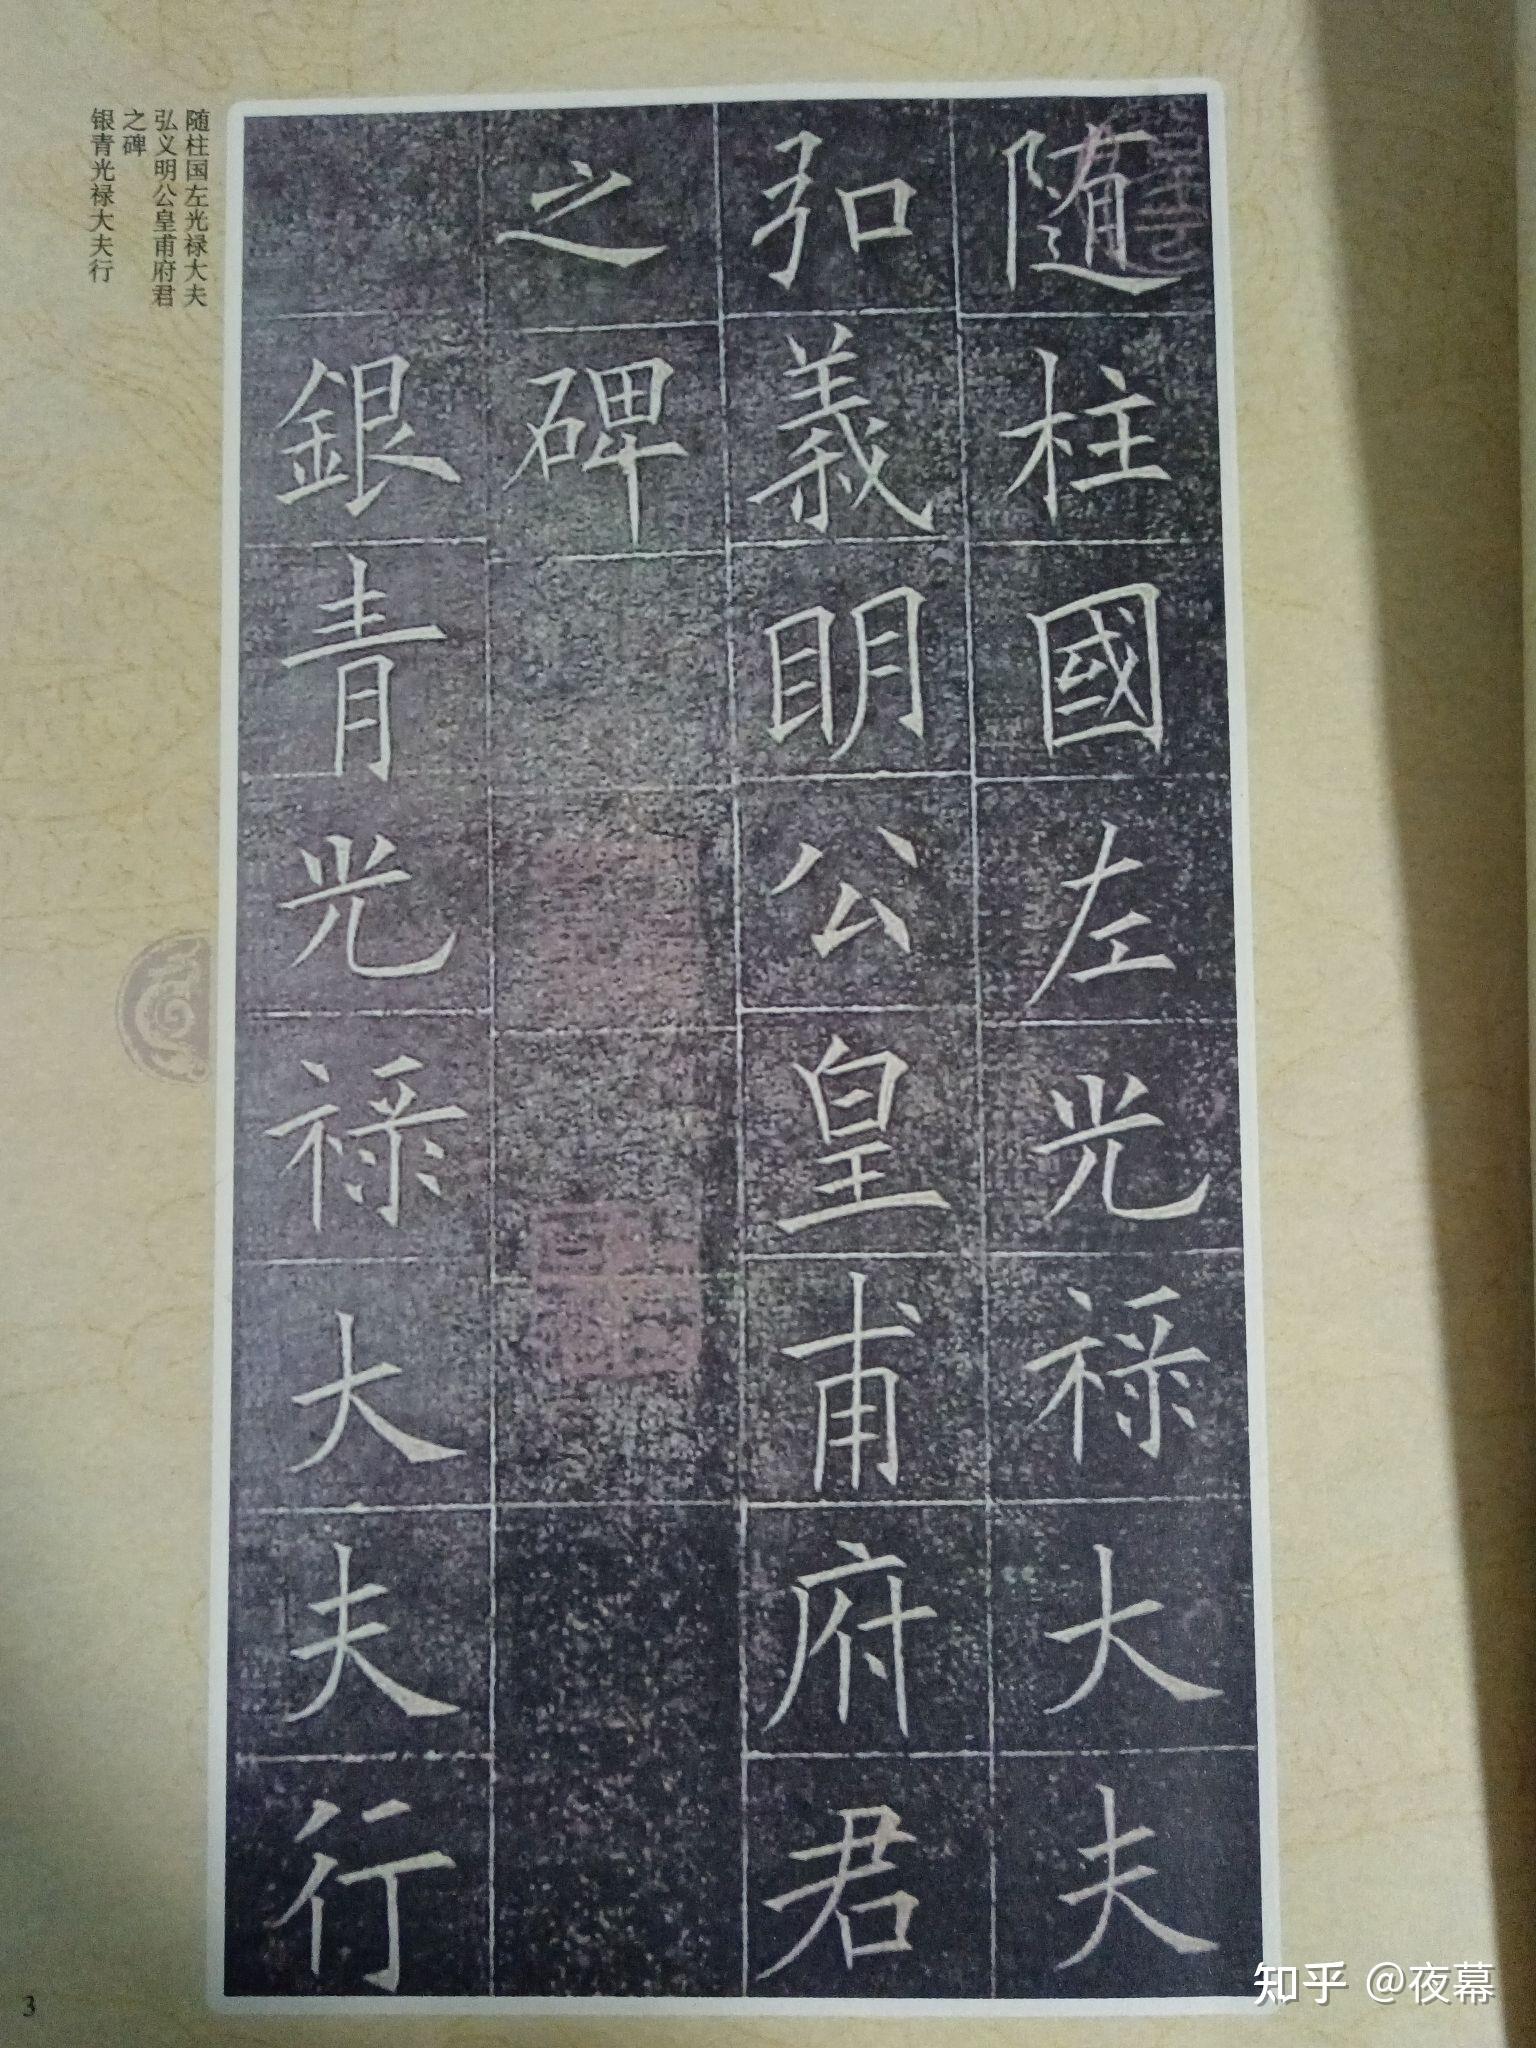 隨柱國左光祿大夫
弘義明公皇甫府君
之碑
銀青光祿大夫行
随柱国左光禄大夫
弘义明公皇甫府君
之碑
银青光禄大夫行
3
知乎 @夜幕